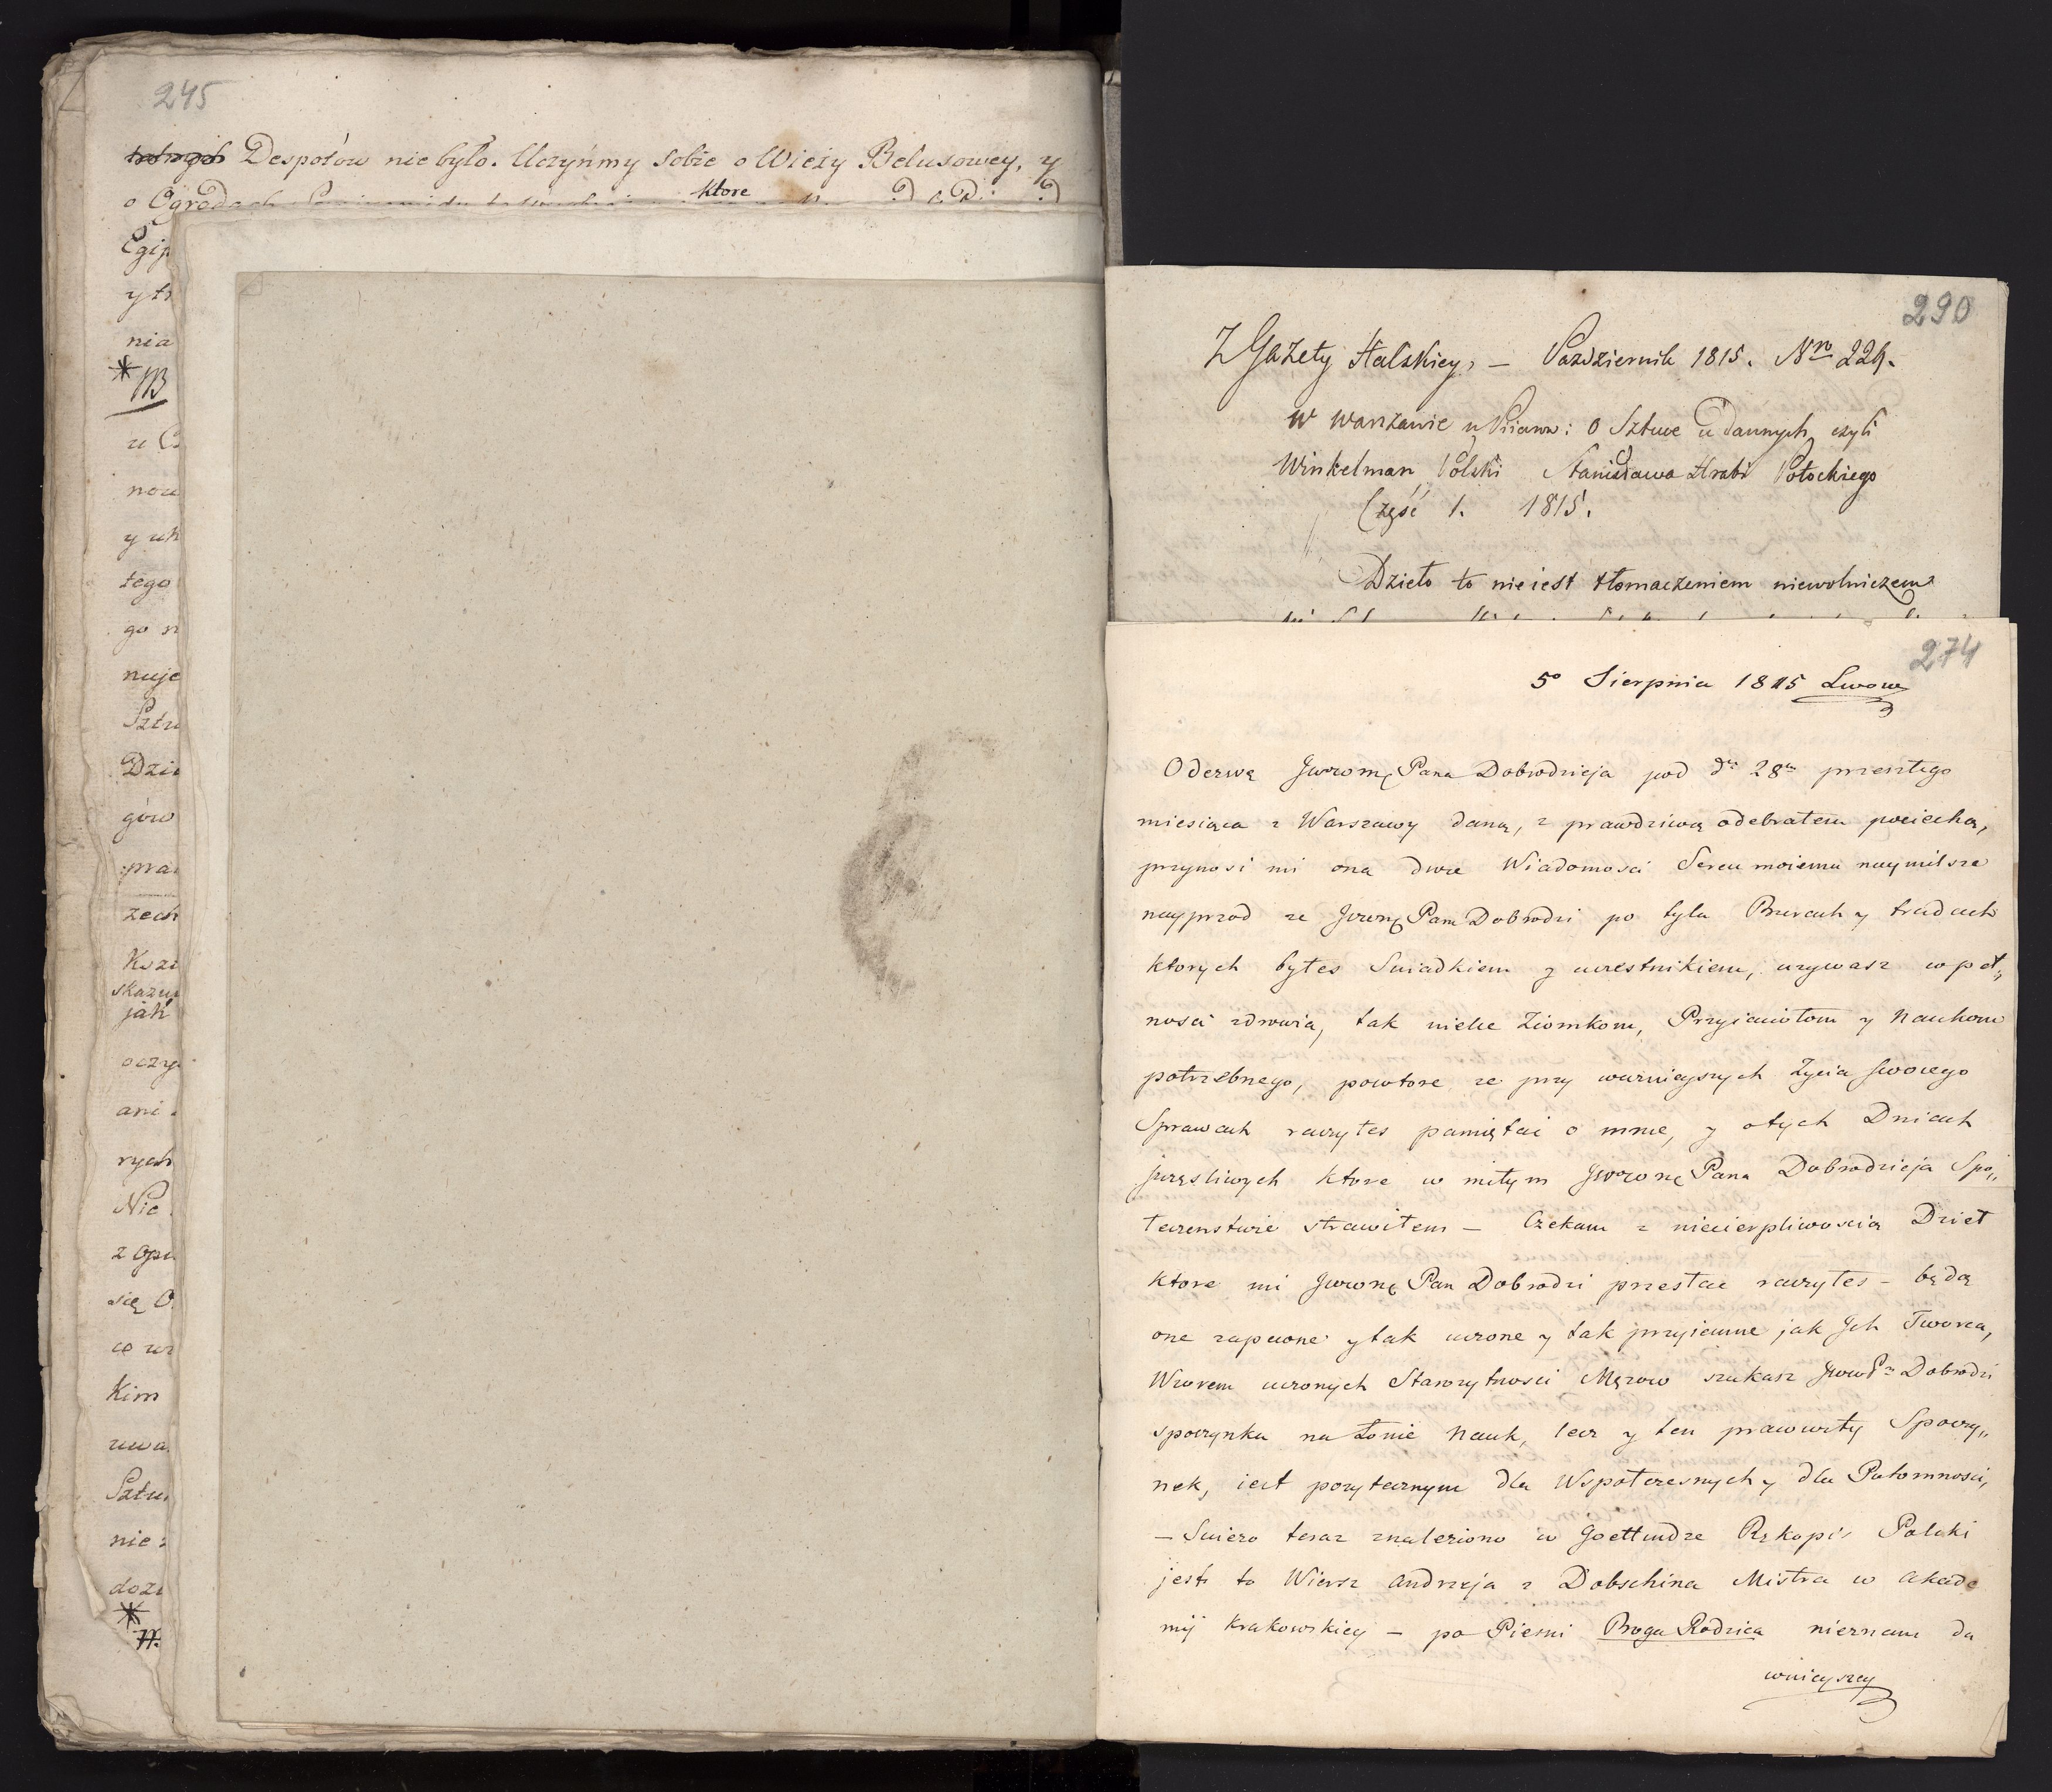 245
Despotów nie było. Uczyńmy sobie o Wieży Belusowey, y
ktore
o Ogrodach
Egip
y tr
nia
*
NB
u
now
y uk
tego
go n
nuje
Sztu
Dzie
gów
pra
zech
skazu
jak
oczy
ani
rych
Nie
z opu
się
ce
kim
uwa
Sztu
nie
*
290
Z Gazety Halskiey, — Pazdziernik 1815. Nro 224.
w Warszawie u Piiarow: O Sztuce u dawnych, czyli
Winkelman Polski Stanisława Hrabi Potockiego
Część 1. 1815.
Dzieło to nieiest tłomaczeniem niewolniczem
274
5o Sierpnia 1815 Lwow
Odezwę Jwwomę Pana Dobrodzieja pod dn 28m przeszłego
miesiąca z Warszawy daną, z prawdziwą odebrałem pociechą,
przynosi mi ona dwie Wiadomosci Sercu moiemu naymilsze
nayprzod ze Jwwonę Pan Dobrodzi po tylu Burzach y trudach
ktorych byłes Swiadkiem y uczestnikiem, uzywasz w peł„
nosci zdrowia, tak wielce Ziomkom, Przyiaciołom y Naukom
potrzebnego, powtore ze przy wazniejszych Zycia swoiego
Sprawach raczyłes pamiętac o mnie, y o tych Dniach
szczęsliwych ktore w miłym Jwwonę Pana Dobrodzieja Spo„
łeczenstwie strawiłem — Czekam z niecierpliwoscią Dzieł
ktore mi Jwwonę Pan Dobrodzi przesłac raczyłes — będą
one zapewne y tak uczone y tak przyiemne jak Ich Tworca,
Wzorem uczonych Starozytnosci Męzow szukasz Jwwo Pn Dobrodzi
spoczynku na Łonie Nauk, lecz y ten pracowity Spoczy„
nek, iest pozytecznym dla Wspołczesnych y dla Potomnosci,
— Swiezo teraz znaleziono w Goettindze Rękopis Polski
jest to Wiersz Andrzeja z Dobschina Mistra w Akade
mij Krakowskiey — po Piesni Boga Rodzica nieznam da
wnieyszey